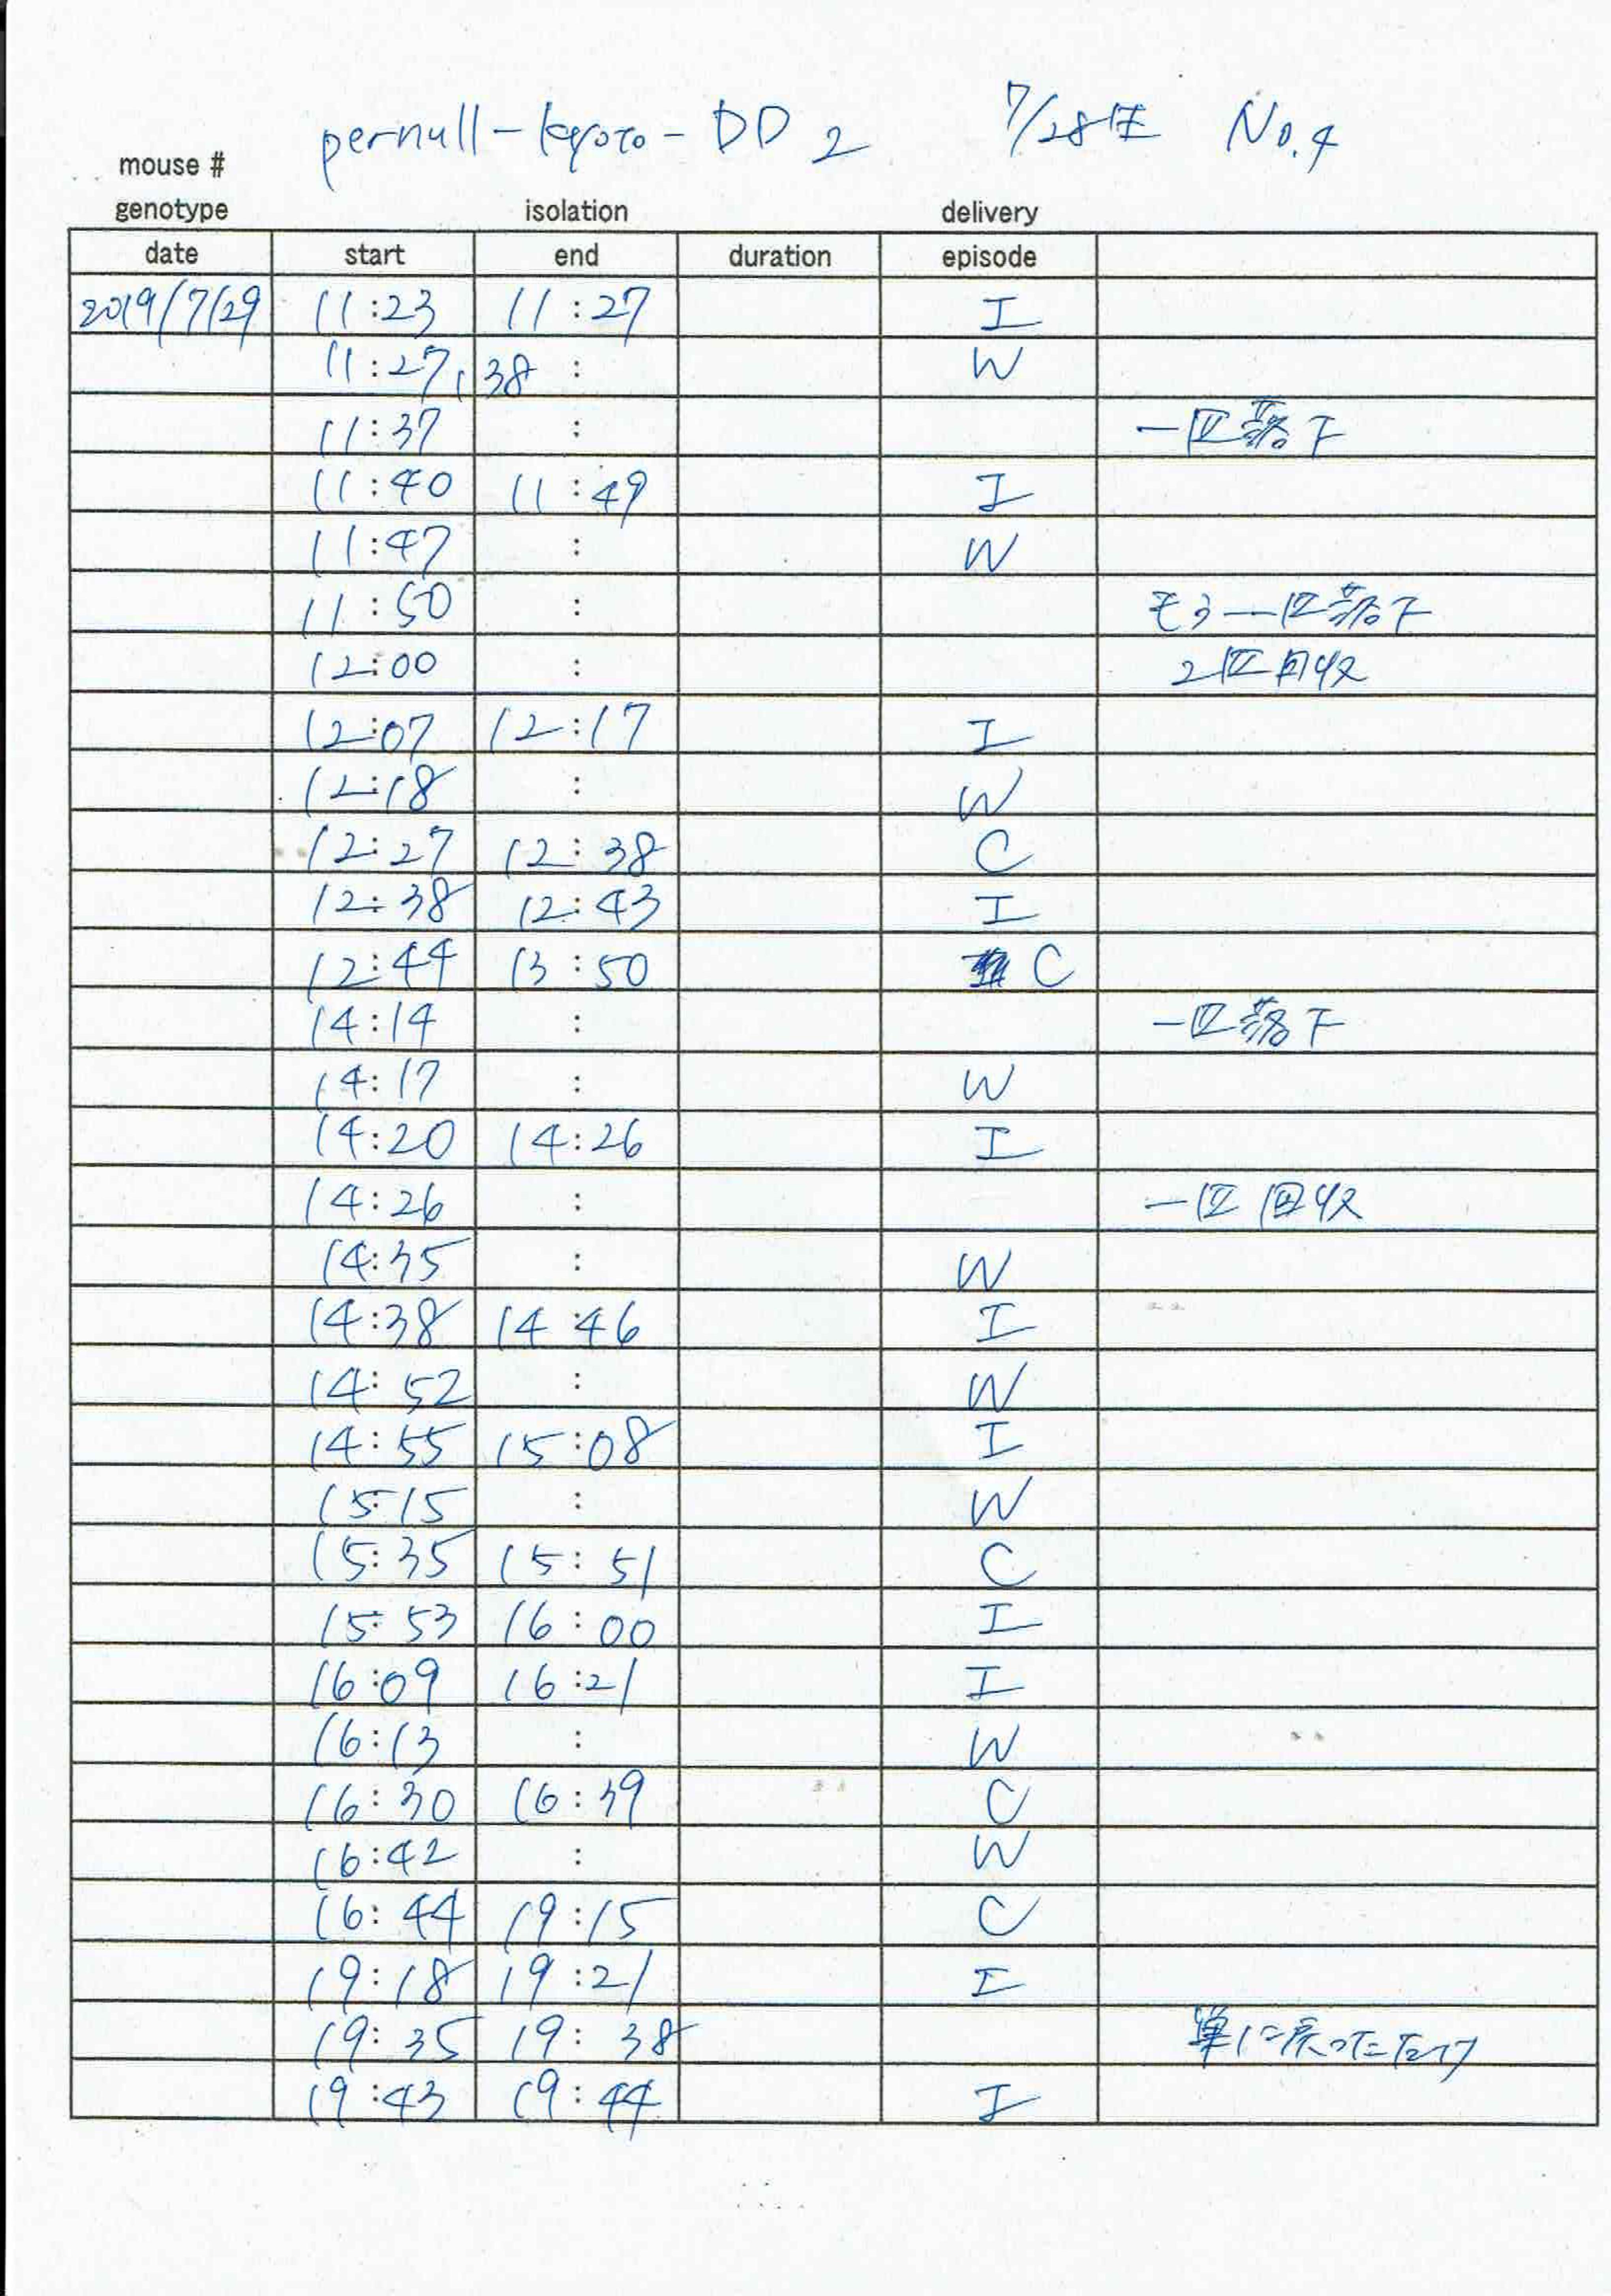 pernull-kyoto-DD 2 7/28生 No.4
mouse #
genotype isolation delivery
date start end duration episode
2019/7/29 11:23 11:27 I
11:27, 38 : W
11:37 : 一匹落下
11:40 11:49 I
11:47 : W
11:50 : もう一匹落下
12:00 : 2匹回収
12:07 12:17 I
12:18 : W
12:27 12:38 C
12:38 12:43 I
12:44 13:50 C
14:14 : 一匹落下
14:17 : W
14:20 14:26 I
14:26 : 一匹回収
14:35 : W
14:38 14:46 I
14:52 : W
14:55 15:08 I
15:15 : W
15:35 15:51 C
15:53 16:00 I
16:09 16:21 I
16:13 : W
16:30 16:39 C
16:42 : W
16:44 19:15 C
19:18 19:21 I
19:35 19:38 に戻っただけ
19:43 19:44 I